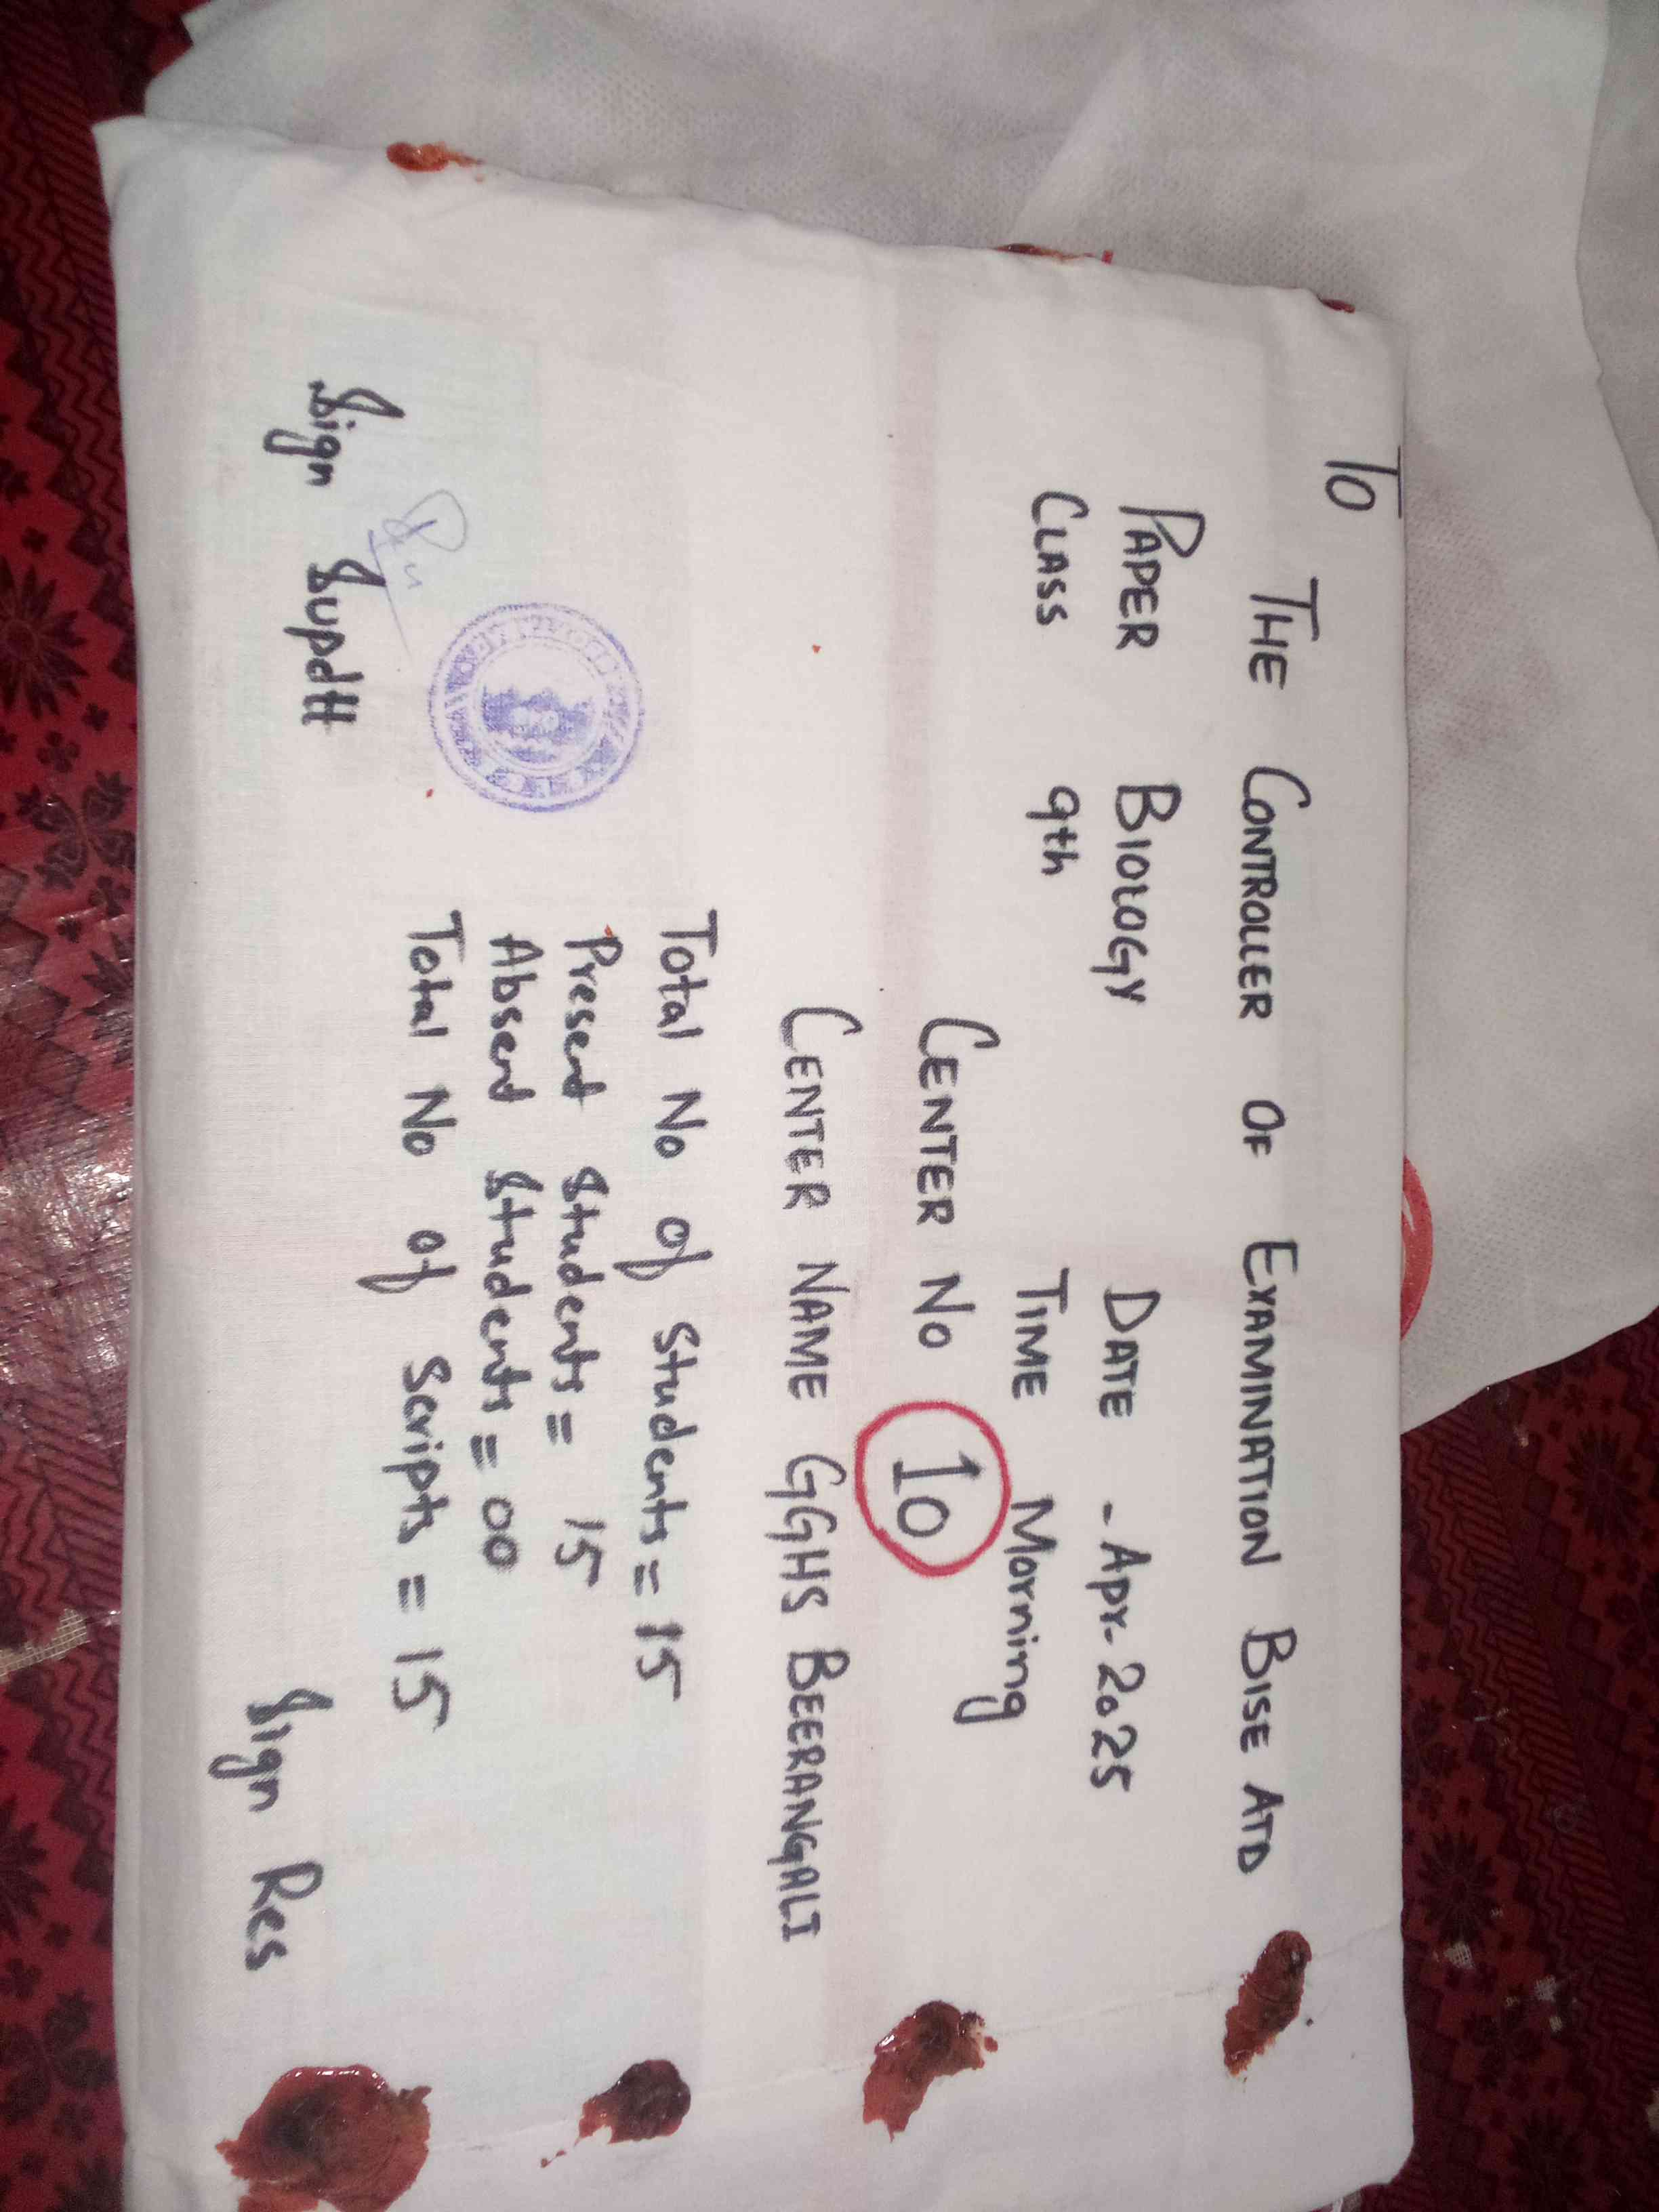 TO
THE CONTROLLER OF EXAMINATION BISE ATD
PAPER BIOLOGY DATE - Apr- 2025
CLASS 9th TIME Morning
CENTER NO 10
CENTER NAME GGHS BEERANGALI
Total No of Students = 15
Present Students = 15
Absent Students = 00
Total No of Scripts = 15
Sign Supdtt
Sign Res